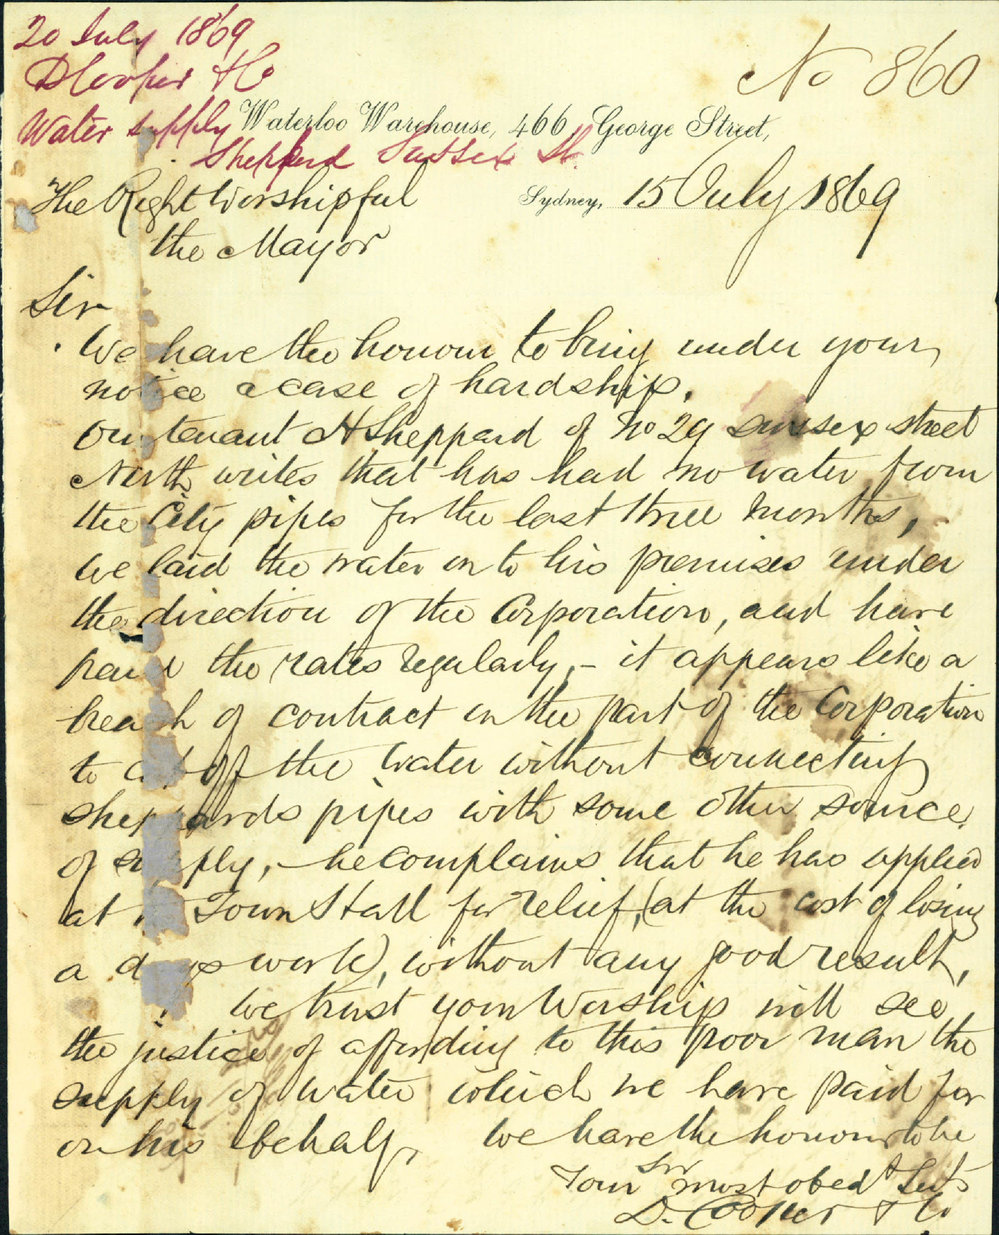 20 July 1869
D Cooper & Co
Water supply
Sheppard Sussex St.
No 860
Waterloo Warehouse, 466 George Street,
Sydney, 15 July 1869
The Right Worshipful
the Mayor
Sir
We have the honour to bring under your
notice a case of hardship.
Our tenant H Sheppard of No 29 Sussex street
North writes that has had no water from
the City pipes for the last three months,
we laid the water on to his premises under
the direction of the Corporation, and have
paid the rates regularly, - it appears like a
breach of contract on the part of the Corporation
to cut off the water without connecting
sheppards pipes with some other source
of supply, - he complains that he has applied
at Town Hall for relief, (at the cost of losing
a days work), without any good result,
We trust your Worship will see
the justice of affording to this poor man the
supply of water which we have paid for
on his behalf, We have the honour to be
Sir
Your most obedt Servts
D. Cooper & Co